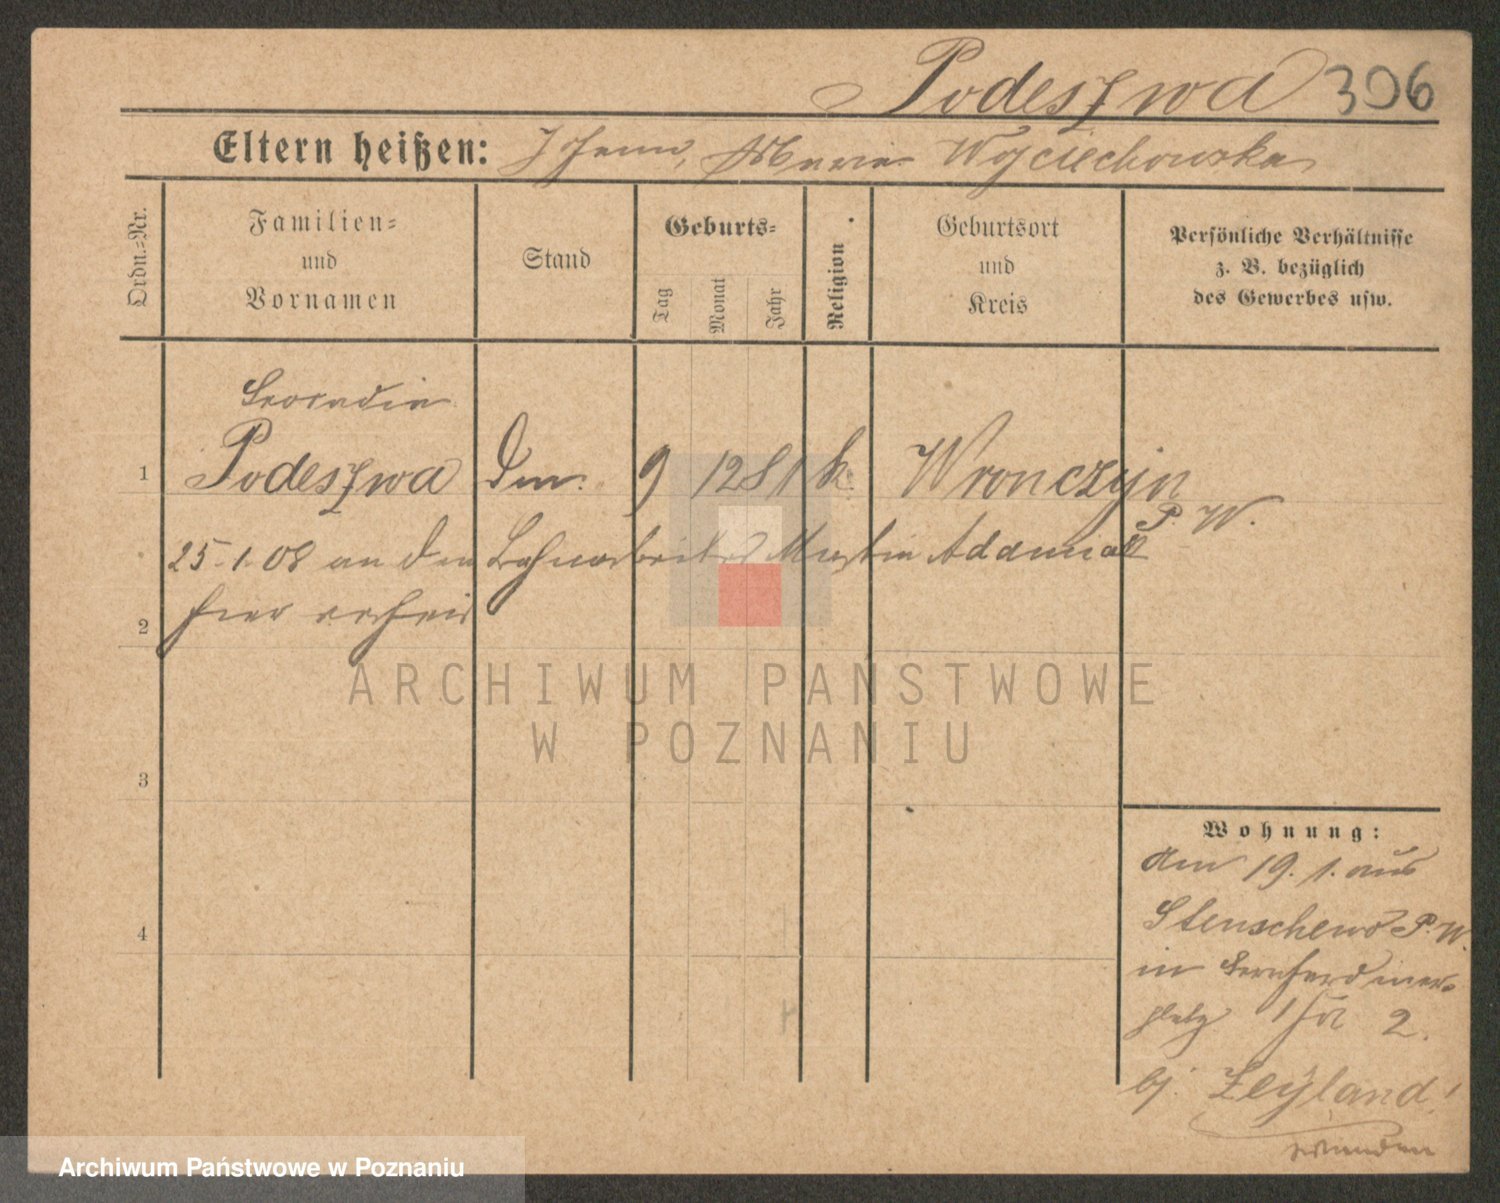 Podeszwa 306
Eltern heißen: Johann, Marie Wojciechowska
Ordn.=Nr.
Familien=
und
Vornamen
Stand
Geburts=
Tag
Monat
Jahr
Religion
Geburtsort
und
Kreis
Persönliche Verhältnisse
z. B. bezüglich
des Gewerbes usw.
Leocadia
1 Podeszwa 9 12 81 k Wronczyn
P. W.
25.1.08 an den Bahnarbeiter Martin Adamiak
2 hier verheir
3
4
Wohnung:
Am 19. 1. aus
Stenschewo P. W.
in Bernhardiner-
platz 2.
bj. Leyland!
ARCHIWUM PAŃSTWOWE
W POZNANIU
Archiwum Państwowe w Poznaniu